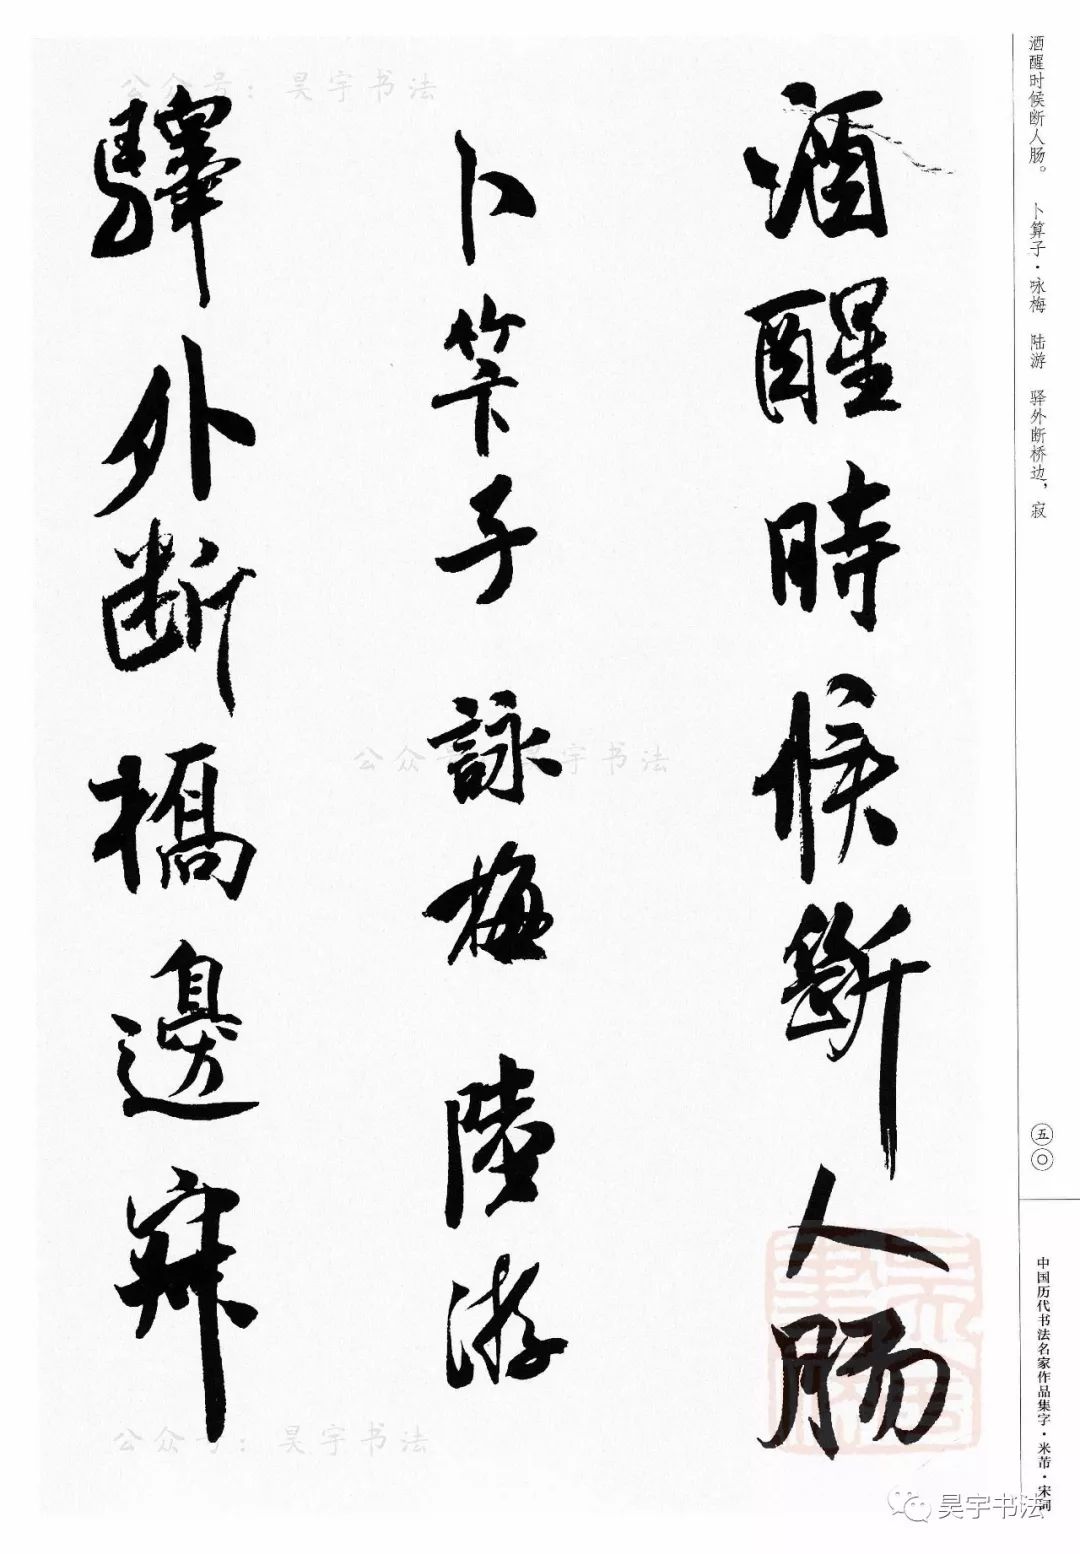 酒醒时候断人肠。 卜算子·咏梅 陆游 驿外断桥边，寂
酒醒時候斷人肠
卜筭子詠梅陸游
驛外断橋邊寂
五〇
中国历代书法名家作品集字·米芾·宋词
公众号：昊宇书法
公众号：昊宇书法
公众号：昊宇书法
昊宇书法